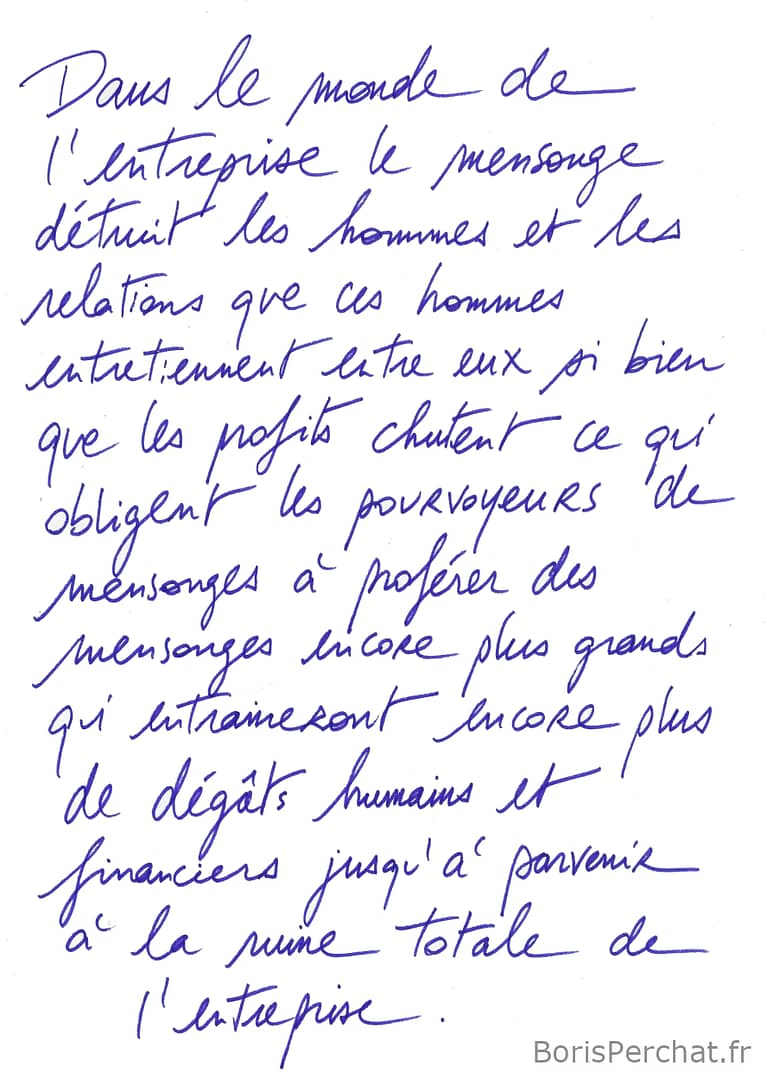 Dans le monde de
l'entreprise le mensonge
détruit les hommes et les
relations que ces hommes
entretiennent entre eux si bien
que les profits chutent ce qui
obligent les pourvoyeurs de
mensonges à proférer des
mensonges encore plus grands
qui entraineront encore plus
de dégâts humains et
financiers jusqu'à parvenir
à la ruine totale de
l'entreprise.
BorisPerchat.fr